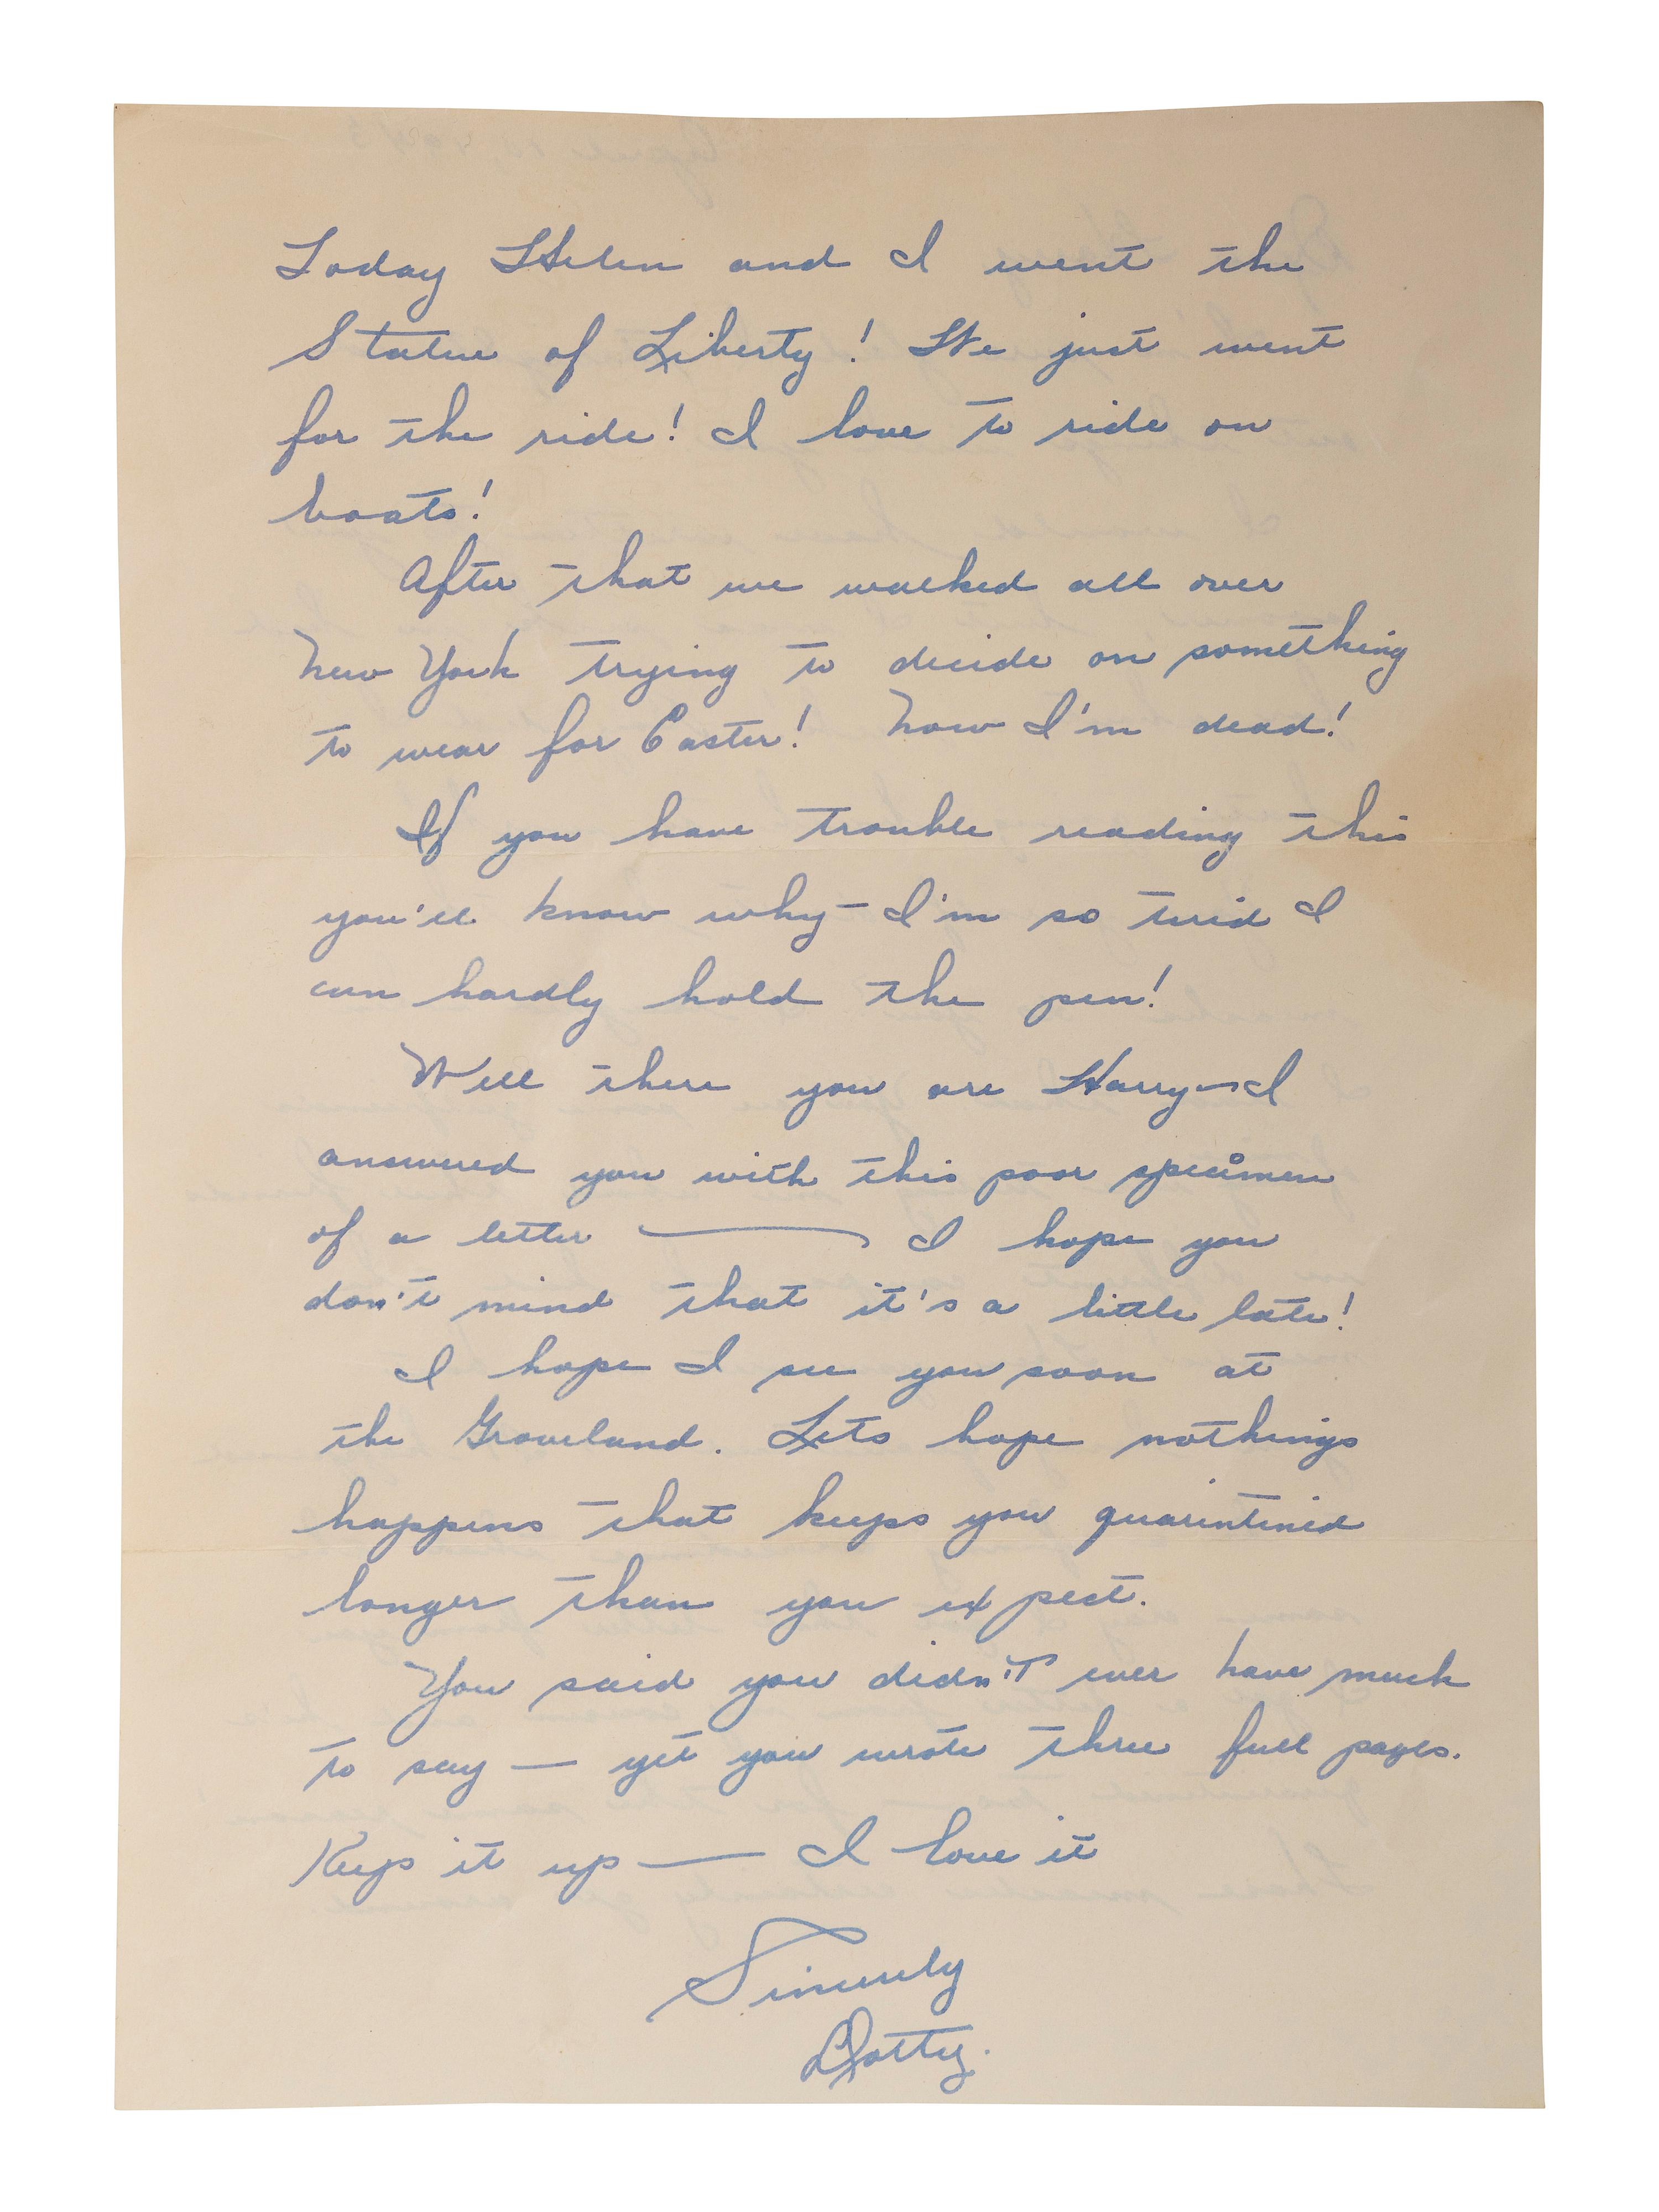 Today Helen and I went the
Statue of Liberty! We just went
for the ride! I love to ride on
boats!
After that we walked all over
New York trying to decide on something
to wear for Easter! Now I'm dead!
If you have trouble reading this
you'll know why – I'm so tried I
can hardly hold the pen!
Well there you are Harry — I
answered you with this poor specimen
of a letter — I hope you
don't mind that it's a little late!
I hope I see you soon at
the Groveland. Lets hope nothings
happens that keeps you quarintined
longer than you expect.
You said you didn't ever have much
to say — yet you wrote three full pages.
Keep it up — I love it
Sincerely
Dotty.